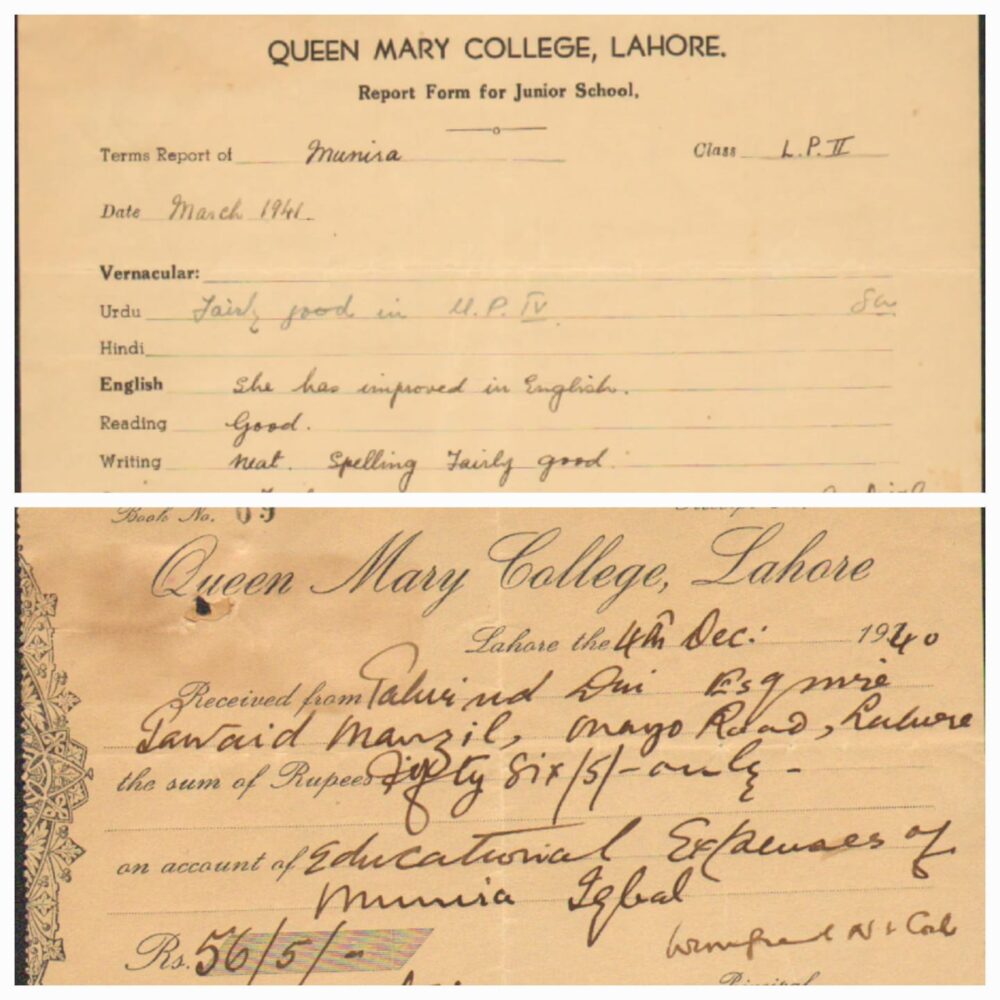 QUEEN MARY COLLEGE, LAHORE.
Report Form for Junior School,
Terms Report of Munira Class L.P. II
Date March 1941.
Vernacular:
Urdu Fairly good in U.P. IV
Hindi
English She has improved in English.
Reading Good.
Writing Neat. Spelling Fairly good.
Book No. 69
Queen Mary College, Lahore
Lahore the 4th Dec: 1940
Received from Esquire
Jawaid Manzil, Mayo Road, Lahore
the sum of Rupees Fifty Six/5/- only -
on account of Educational Expenses of
Munira Iqbal
Rs. 56/5/-
Principal